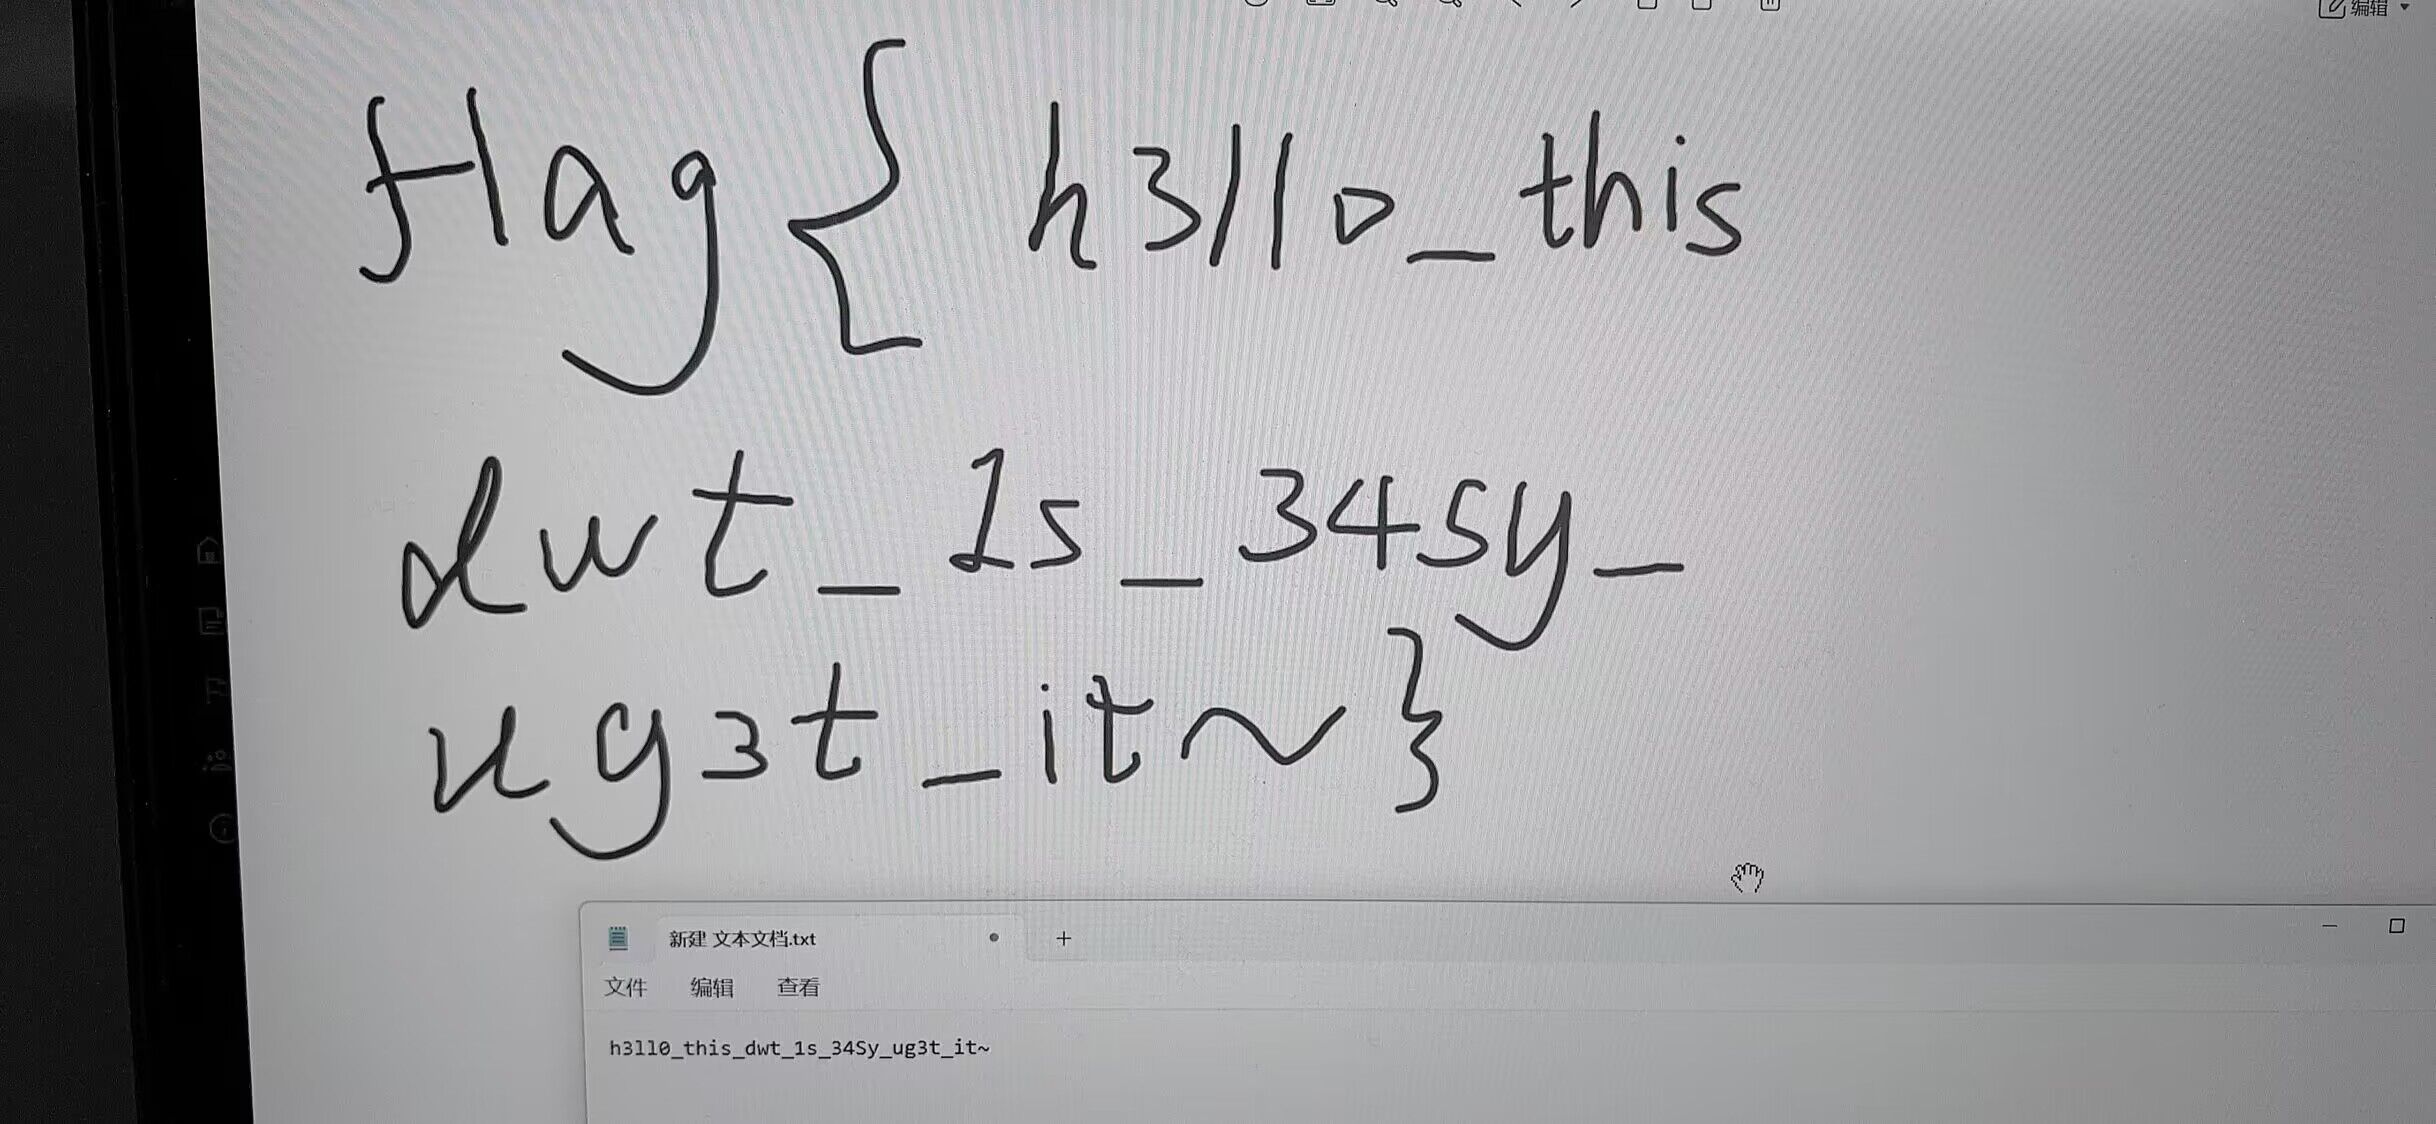 编辑
flag{h3llo_this
dwt_1s_34sy_
ug3t_it~}
新建 文本文档.txt
文件 编辑 查看
h3ll0_this_dwt_1s_34Sy_ug3t_it~